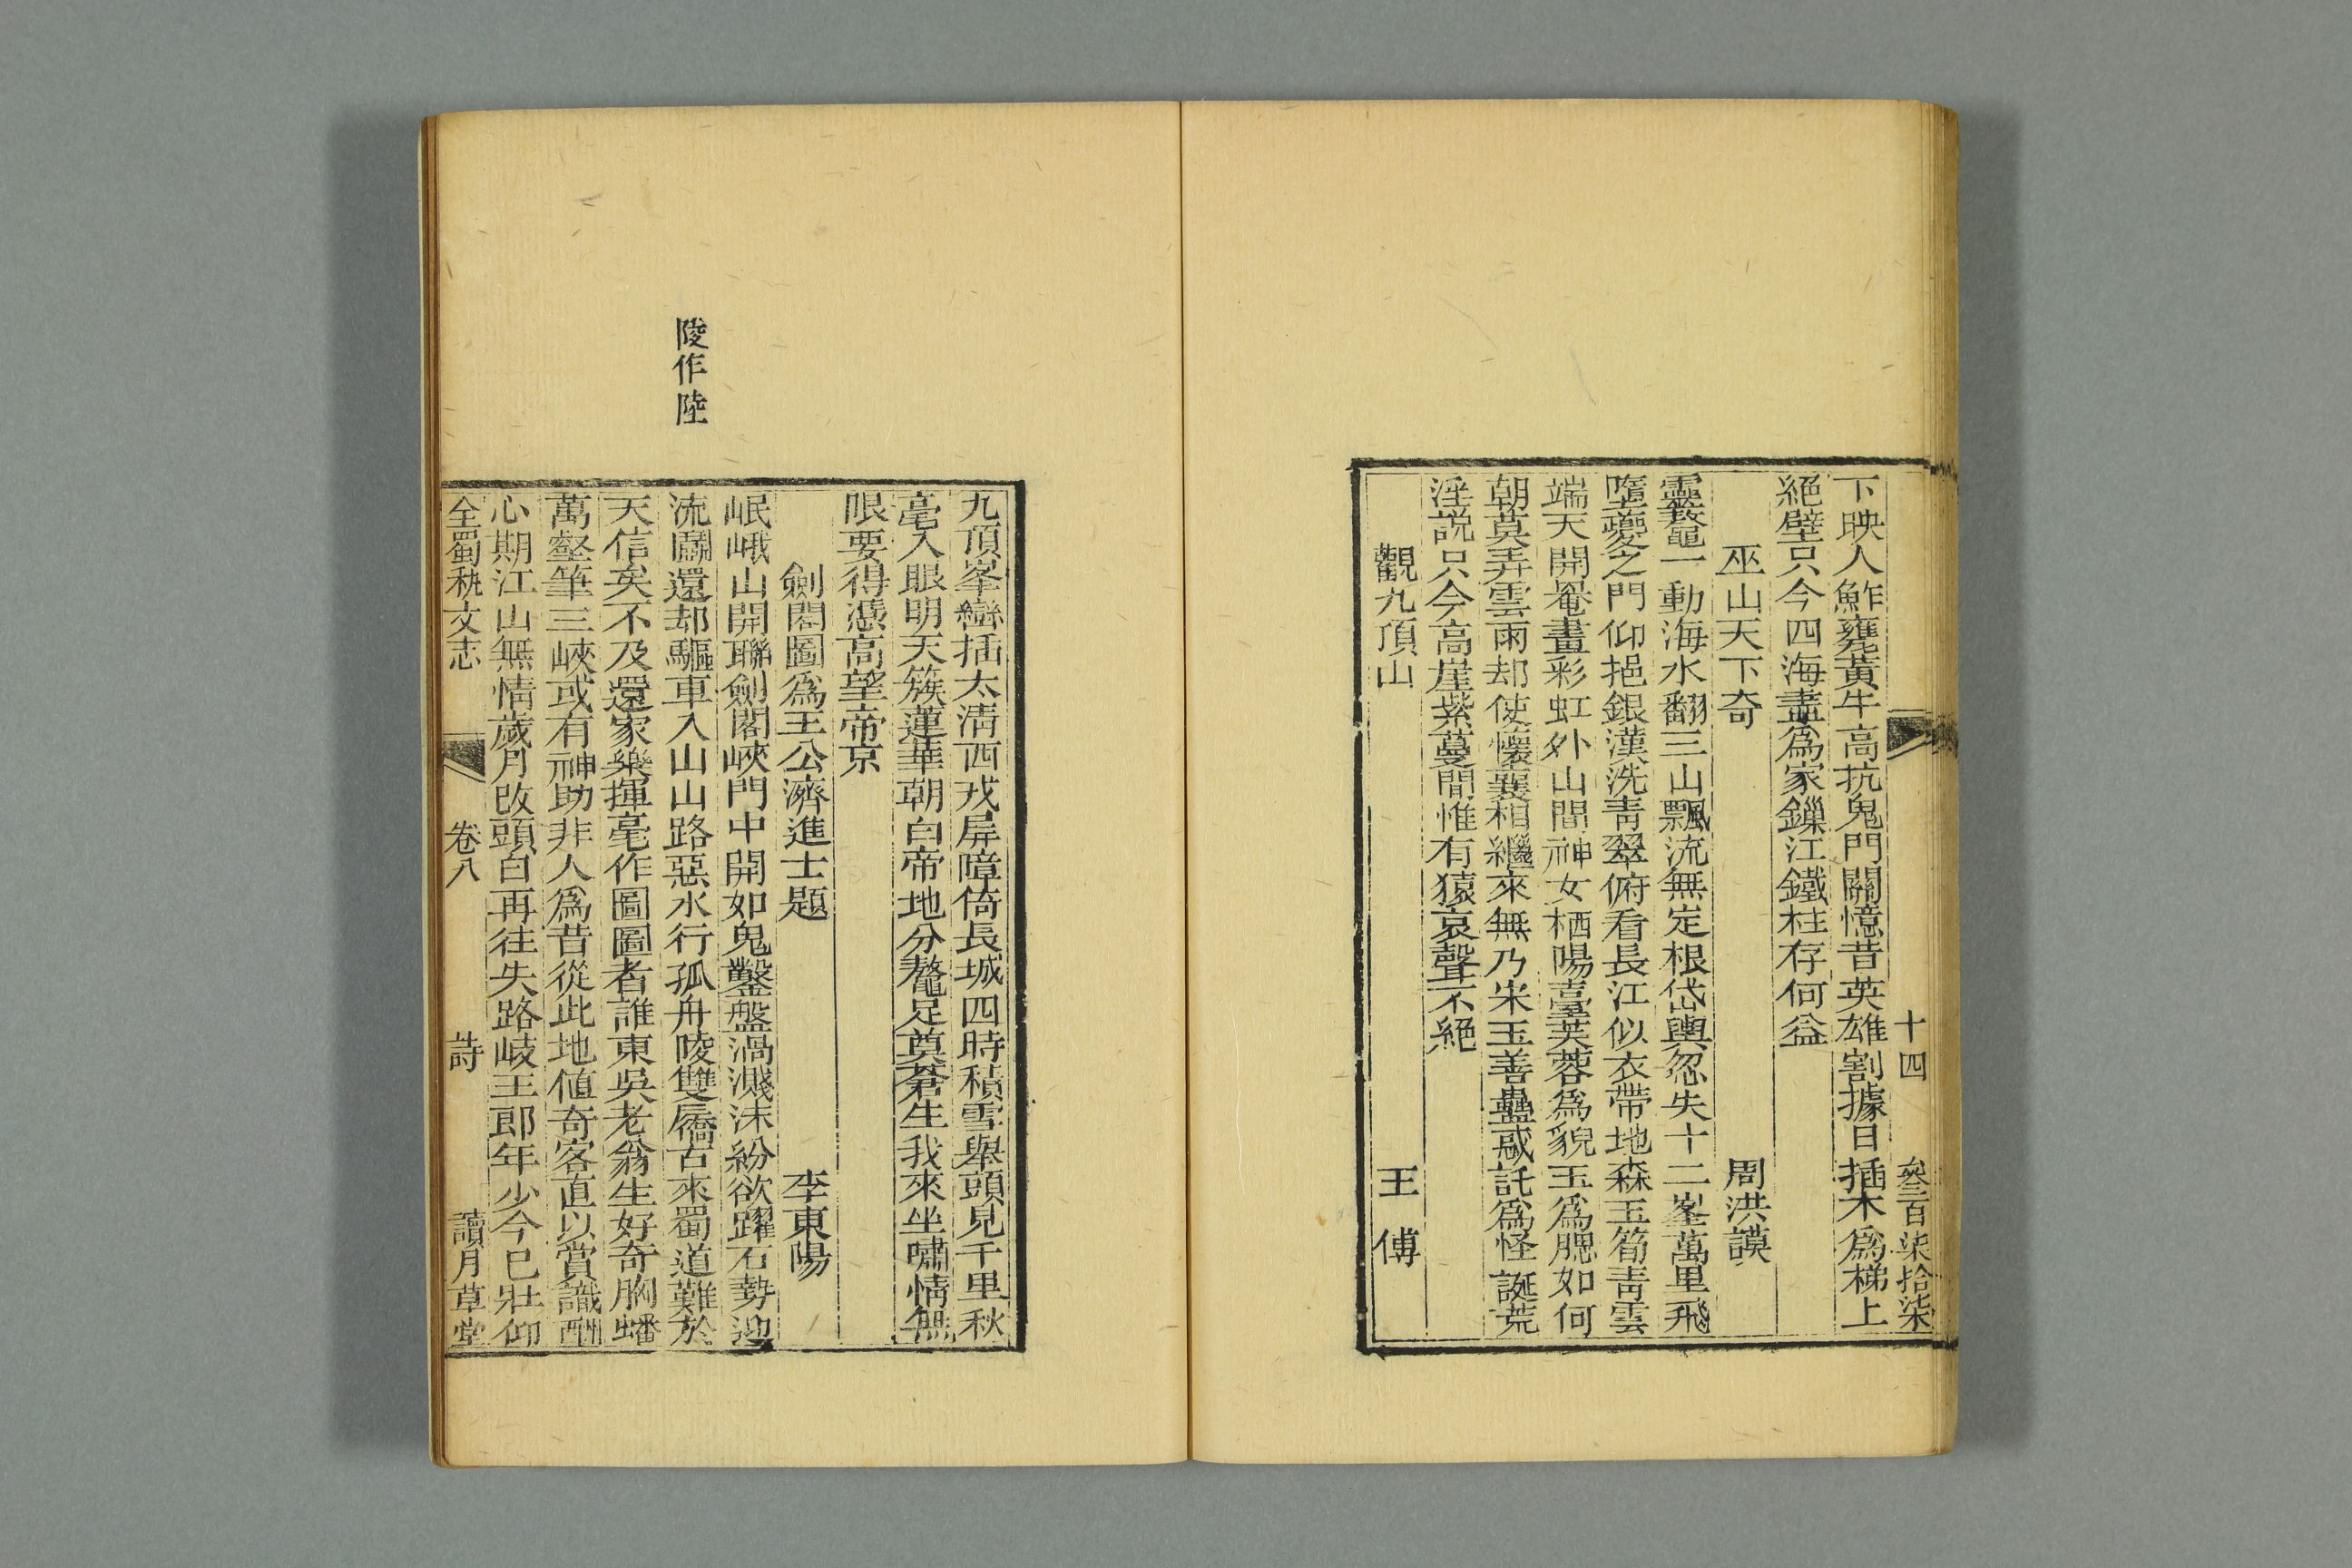 十四 叄百柒拾柒
下映人鮓甕黃牛高抗鬼門關憶昔英雄割據日插木爲梯上
絕壁只今四海盡爲家鏁江鐵柱存何益
巫山天下奇 周洪謨
靈鼇一動海水翻三山飄流無定根岱輿忽失十二峯萬里飛
墮夔之門仰挹銀漢洗靑翠俯看長江似衣帶地森玉筍靑雲
端天開罨畫彩虹外山間神女栖陽臺芙蓉爲貌玉爲腮如何
朝莫弄雲雨却使懷襄相繼來無乃宋玉善蠱惑託爲怪誕荒
淫說只今高崖紫蔓間惟有猿哀聲不絕
觀九頂山 王傅
九頂峯巒插太淸西戎屏障倚長城四時積雪舉頭見千里秋
毫入眼明天簇蓮華朝白帝地分鼇足奠蒼生我來坐嘯情無
限要得憑高望帝京
劍閣圖爲王公濟進士題 李東陽
岷峨山開聯劍閣峽門中開如鬼鑿盤渦濺沫紛欲躍石勢迎
流鬭還却驅車入山山路惡水行孤舟陵雙屩古來蜀道難於
天信矣不及還家樂揮毫作圖圖者誰東吳老翁生好奇胸蟠
萬壑筆三峽或有神助非人爲昔從此地値奇客直以賞識酬
心期江山無情歲月改頭白再往失路岐王郎年少今巳壯仰
全蜀秇文志 卷八 詩 讀月草堂
陵作陸